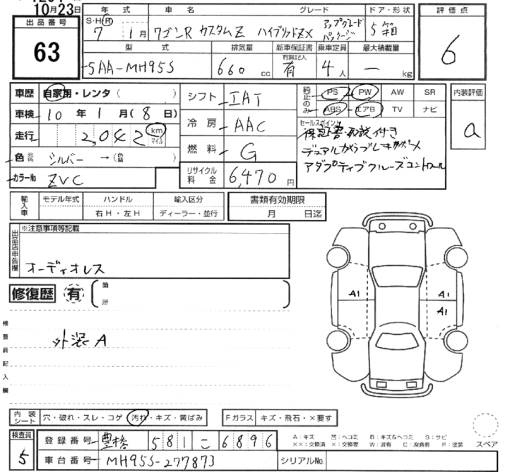 10月23日
出品番号
63
年式 車名 グレード ドア・形状 評価点
S・H(R) 7 1月 ワゴンR カスタムZ ハイブリッドZX アップグレードパッケージ 5
6
型式 排気量 新車保証書 乗車定員 最大積載量
5AA-MH95S 660 cc 有 4人 ー kg
車歴 自家用・レンタ
車検 10年 1月 (8日)
走行 2,042 km マイル
色 シルバー →
カラーNo ZVC
シフト IAT
冷房 AAC
燃料 G
リサイクル料金 6,470円
純正のみ PS PW AW SR
ABS エアB TV ナビ
内装評価
a
セールスポイント
保証書記録付き
アダプティブクルーズコントロール
輸入車 モデル年式 ハンドル 輸入区分
右H・左H ディーラー・並行
書類有効期限
月 日迄
※注意事項等記載
オーディオレス
修復歴 有 箇所
外装A
A1 A1
検査員記入欄
内装シート 穴・破れ・スレ・コゲ 汚れ・キズ・黄ばみ Fガラス キズ・飛石・×要す
検査員 5
登録番号 豊橋 581 こ 6896
車台番号 MH95S-277873 シリアルNo.
スペア